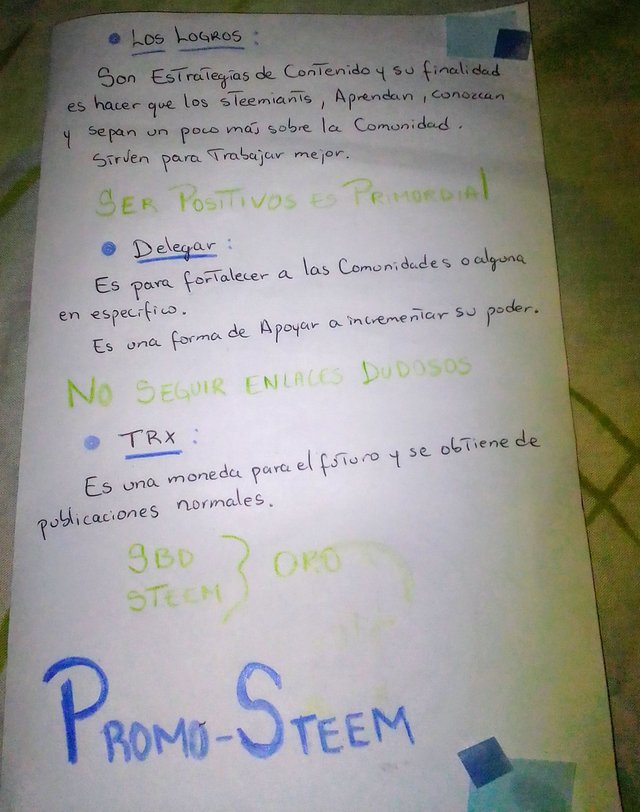 • Los Logros :
Son Estrategias de Contenido y su finalidad
es hacer que los steemians, Aprendan, conozcan
y sepan un poco más sobre la Comunidad.
Sirven para Trabajar mejor.
SER POSITIVOS ES PRIMORDIAL
• Delegar :
Es para fortalecer a las Comunidades o alguna
en especifico.
Es una forma de Apoyar a incrementar su poder.
NO SEGUIR ENLACES DUDOSOS
• TRX :
Es una moneda para el futuro y se obtiene de
publicaciones normales.
SBD } ORO
STEEM
PROMO-STEEM